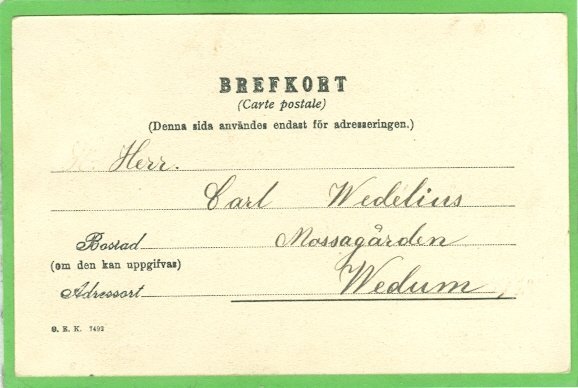 BREFKORT
(Carte postale)
(Denna sida användes endast för adresseringen.)
Herr.
Carl Wedelius
Bostad Mossagården
(om den kan uppgifvas) Wedum
Adressort
S. E. K. 7492